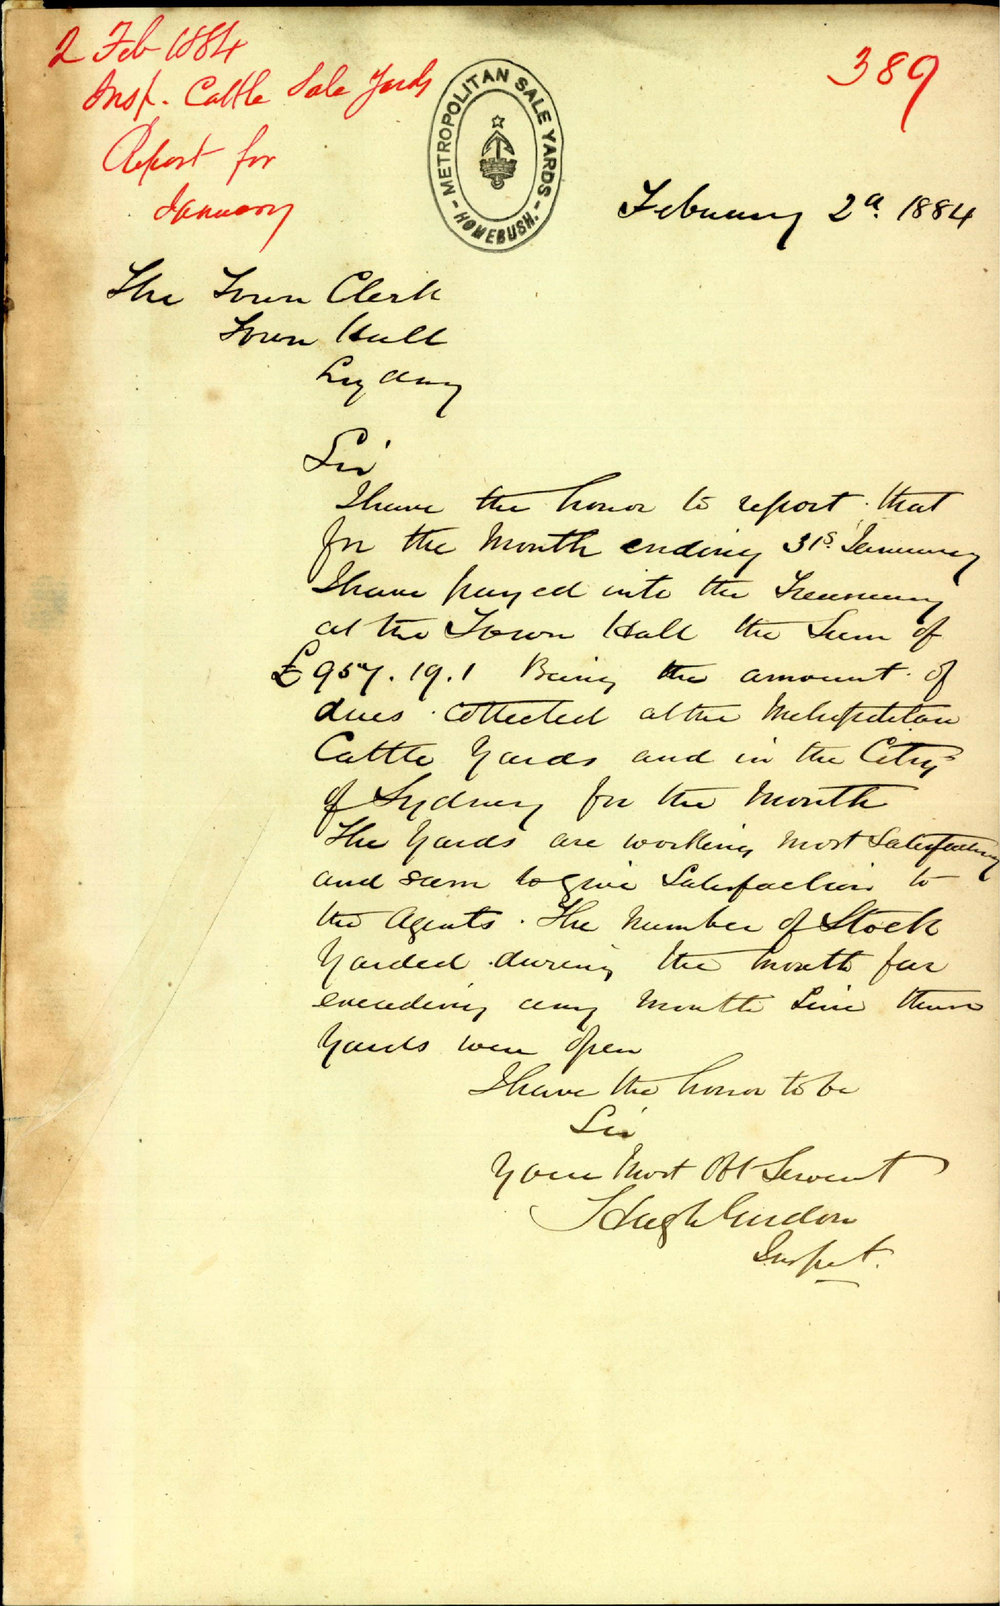 2 Feb 1884
Insp. Cattle Sale Yards
Report for
January
389
METROPOLITAN SALE YARDS
HOMEBUSH.
February 2d. 1884
The Town Clerk
Town Hall
Sydney
Sir
I have the honor to report that
for the Month ending 31s. January
I have payed into the Treasury
at the Town Hall the Sum of
£957.19.1 Being the amount of
dues collected at the Metropolitan
Cattle Yards and in the City
of Sydney for the Month
The Yards are working most Satisfactory
and seem to give Satisfaction to
the Agents. The Number of Stock
Yarded during the Month far
exceeding any Month Since these
Yards were open
I have the honor to be
Sir
Your Most Obt Servant
Hugh
Inspet.